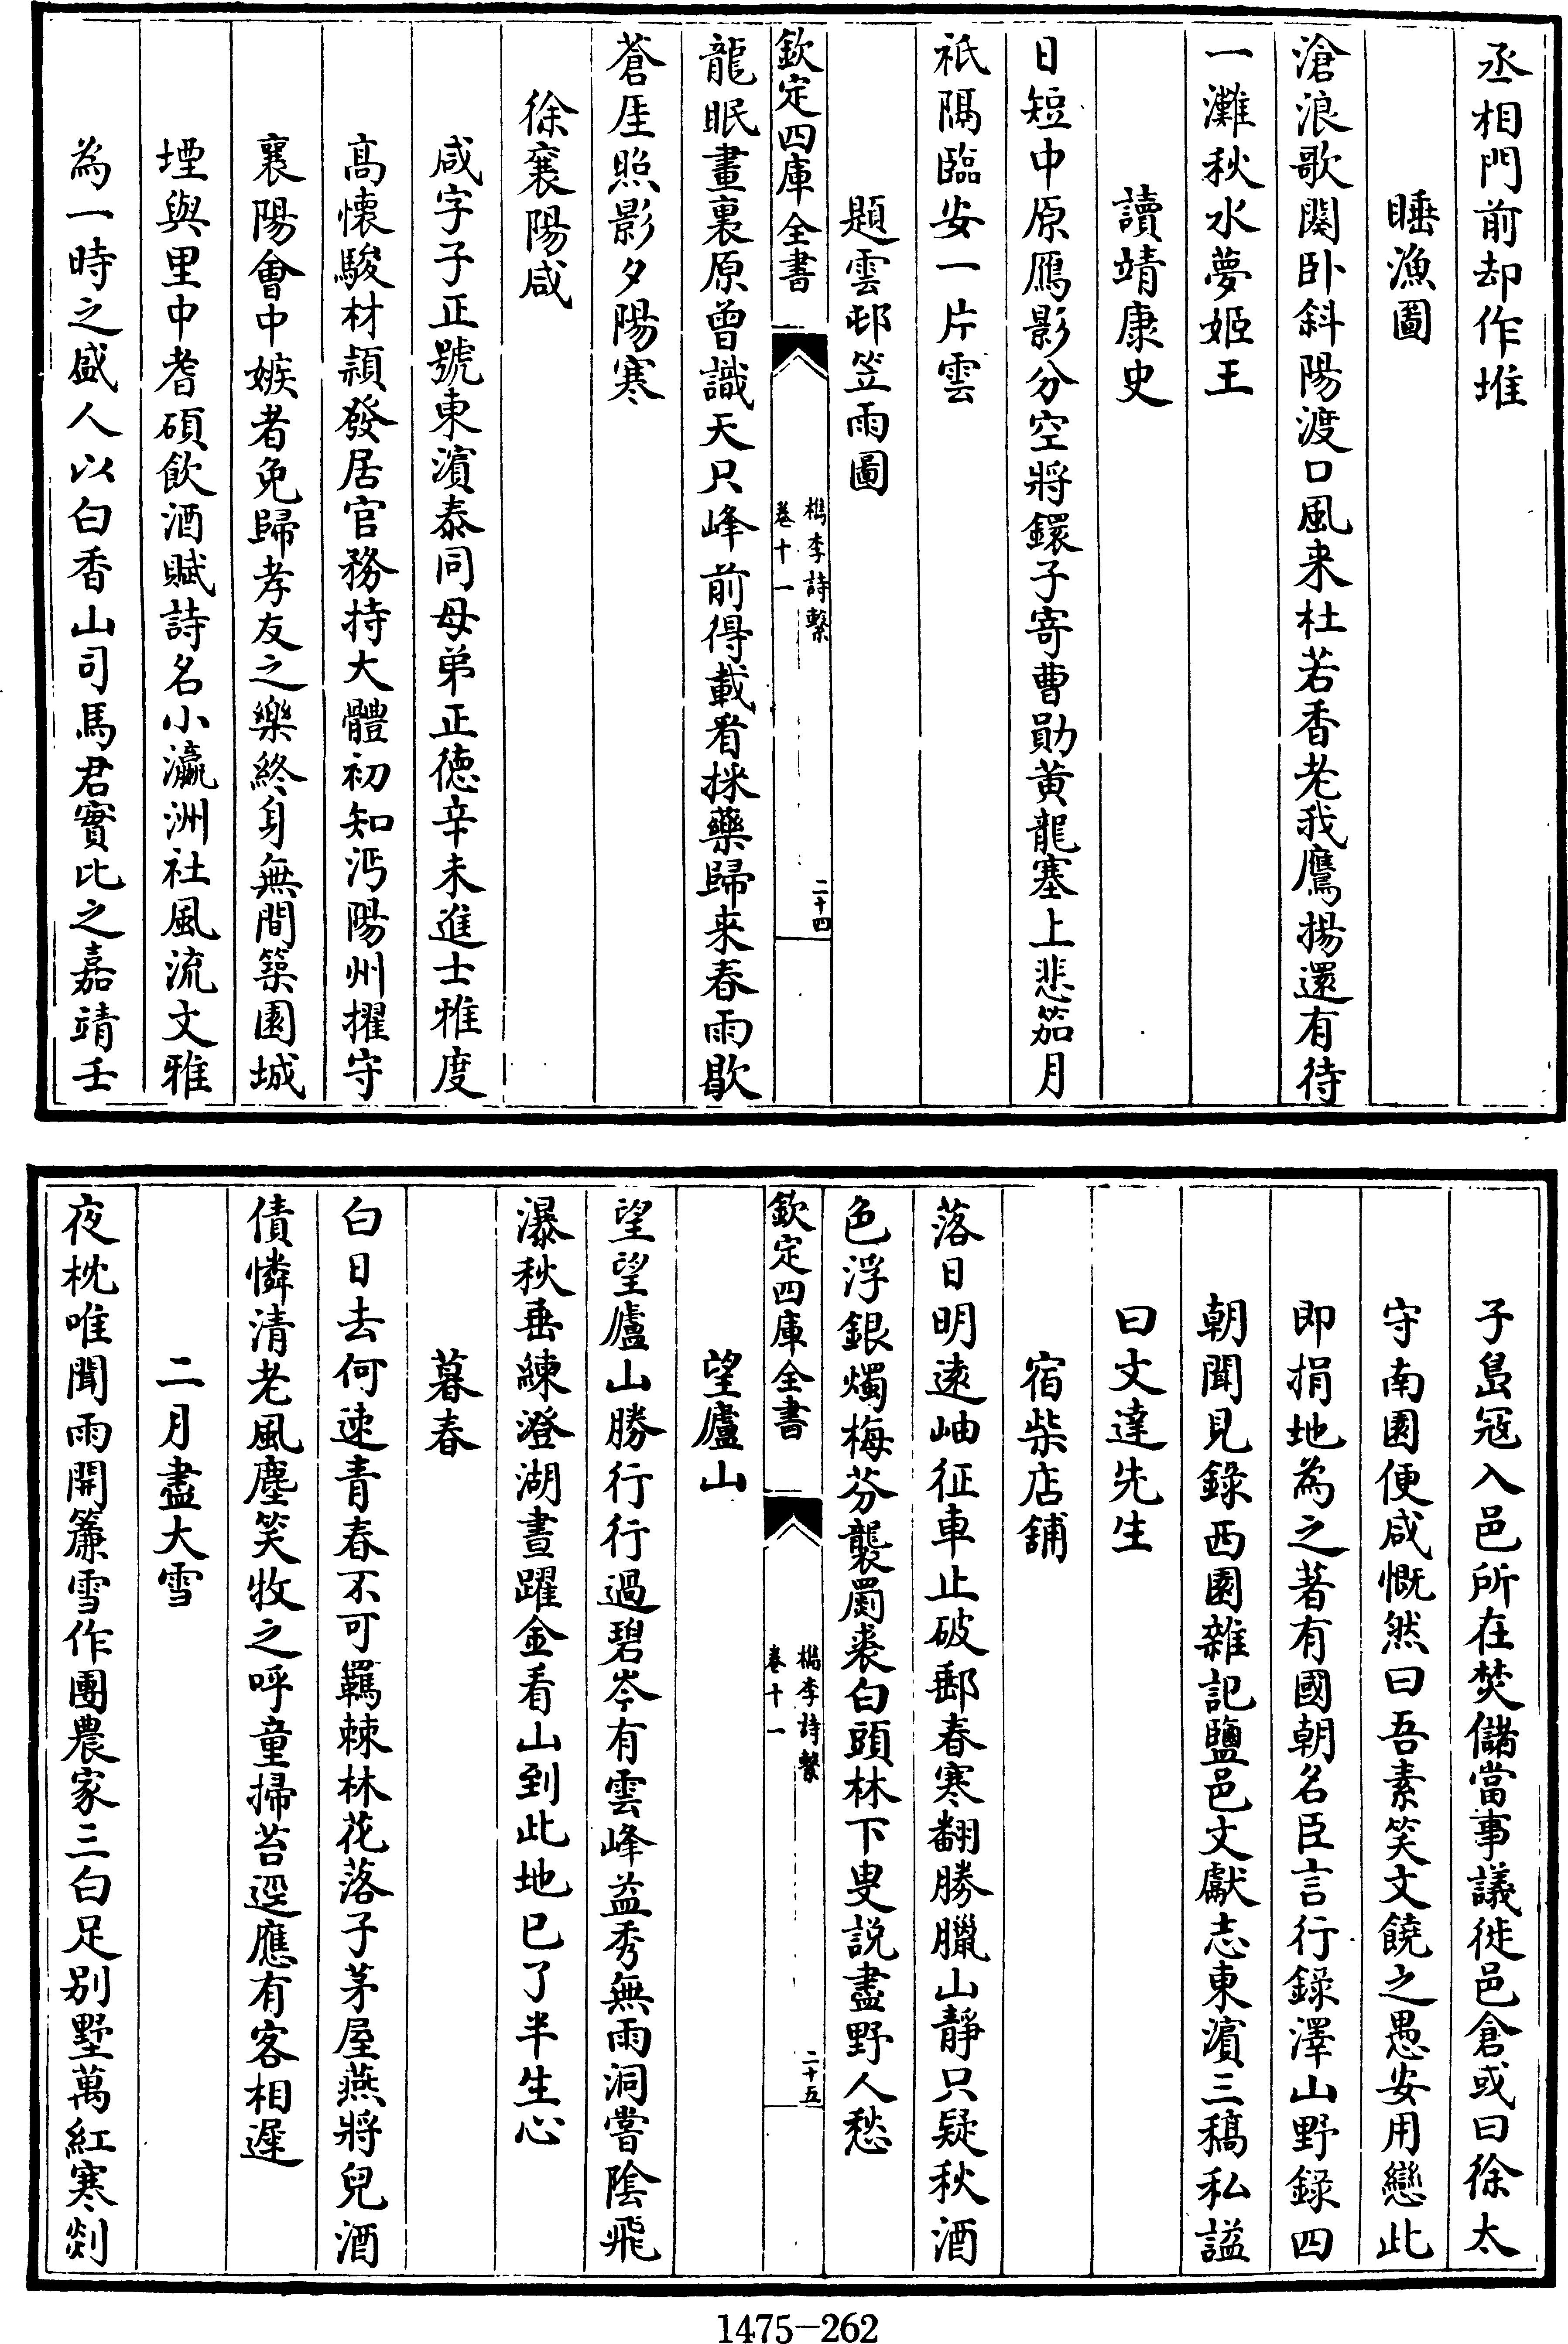 丞相門前却作堆
睡漁圖
滄浪歌闋卧斜陽渡口風来杜若香老我鷹揚還有待
一灘秋水夢姬王
讀靖康史
日短中原鴈影分空將鐶子寄曹勛黄龍塞上悲笳月
祇隔臨安一片雲
題雲邨笠雨圖
欽定四庫全書
檇李詩繫
卷十一
二十四
龍眠畫裏原曾識天只峰前得載看採藥歸来春雨歇
蒼厓照影夕陽寒
徐襄陽咸
咸字子正號東濵泰同母弟正德辛未進士雅度
髙懐駿材頴發居官務持大體初知沔陽州擢守
襄陽會中嫉者免歸孝友之樂終身無間築園城
堙與里中耆碩飲酒賦詩名小瀛洲社風流文雅
為一時之盛人以白香山司馬君實比之嘉靖壬
子島冦入邑所在焚儲當事議徙邑倉或曰徐太
守南園便咸慨然曰吾素笑文饒之愚安用戀此
即捐地為之著有國朝名臣言行錄澤山野録四
朝聞見錄西園雜記鹽邑文獻志東濵三稿私謚
曰文達先生
宿柴店舖
落日明遠岫征車止破郵春寒翻勝臘山靜只疑秋酒
色浮銀燭梅芬襲罽裘白頭林下叟説盡野人愁
欽定四庫全書
檇李詩繫
卷十一
二十五
望廬山
望望廬山勝行行過碧岑有雲峰益秀無雨洞嘗陰飛
瀑秋垂練澄湖晝躍金看山到此地已了半生心
暮春
白日去何速青春不可羈棘林花落子茅屋燕將兒酒
債憐清老風塵笑牧之呼童掃苔逕應有客相遲
二月盡大雪
夜枕唯聞雨開簾雪作團農家三白足别墅萬紅寒剡
1475-262